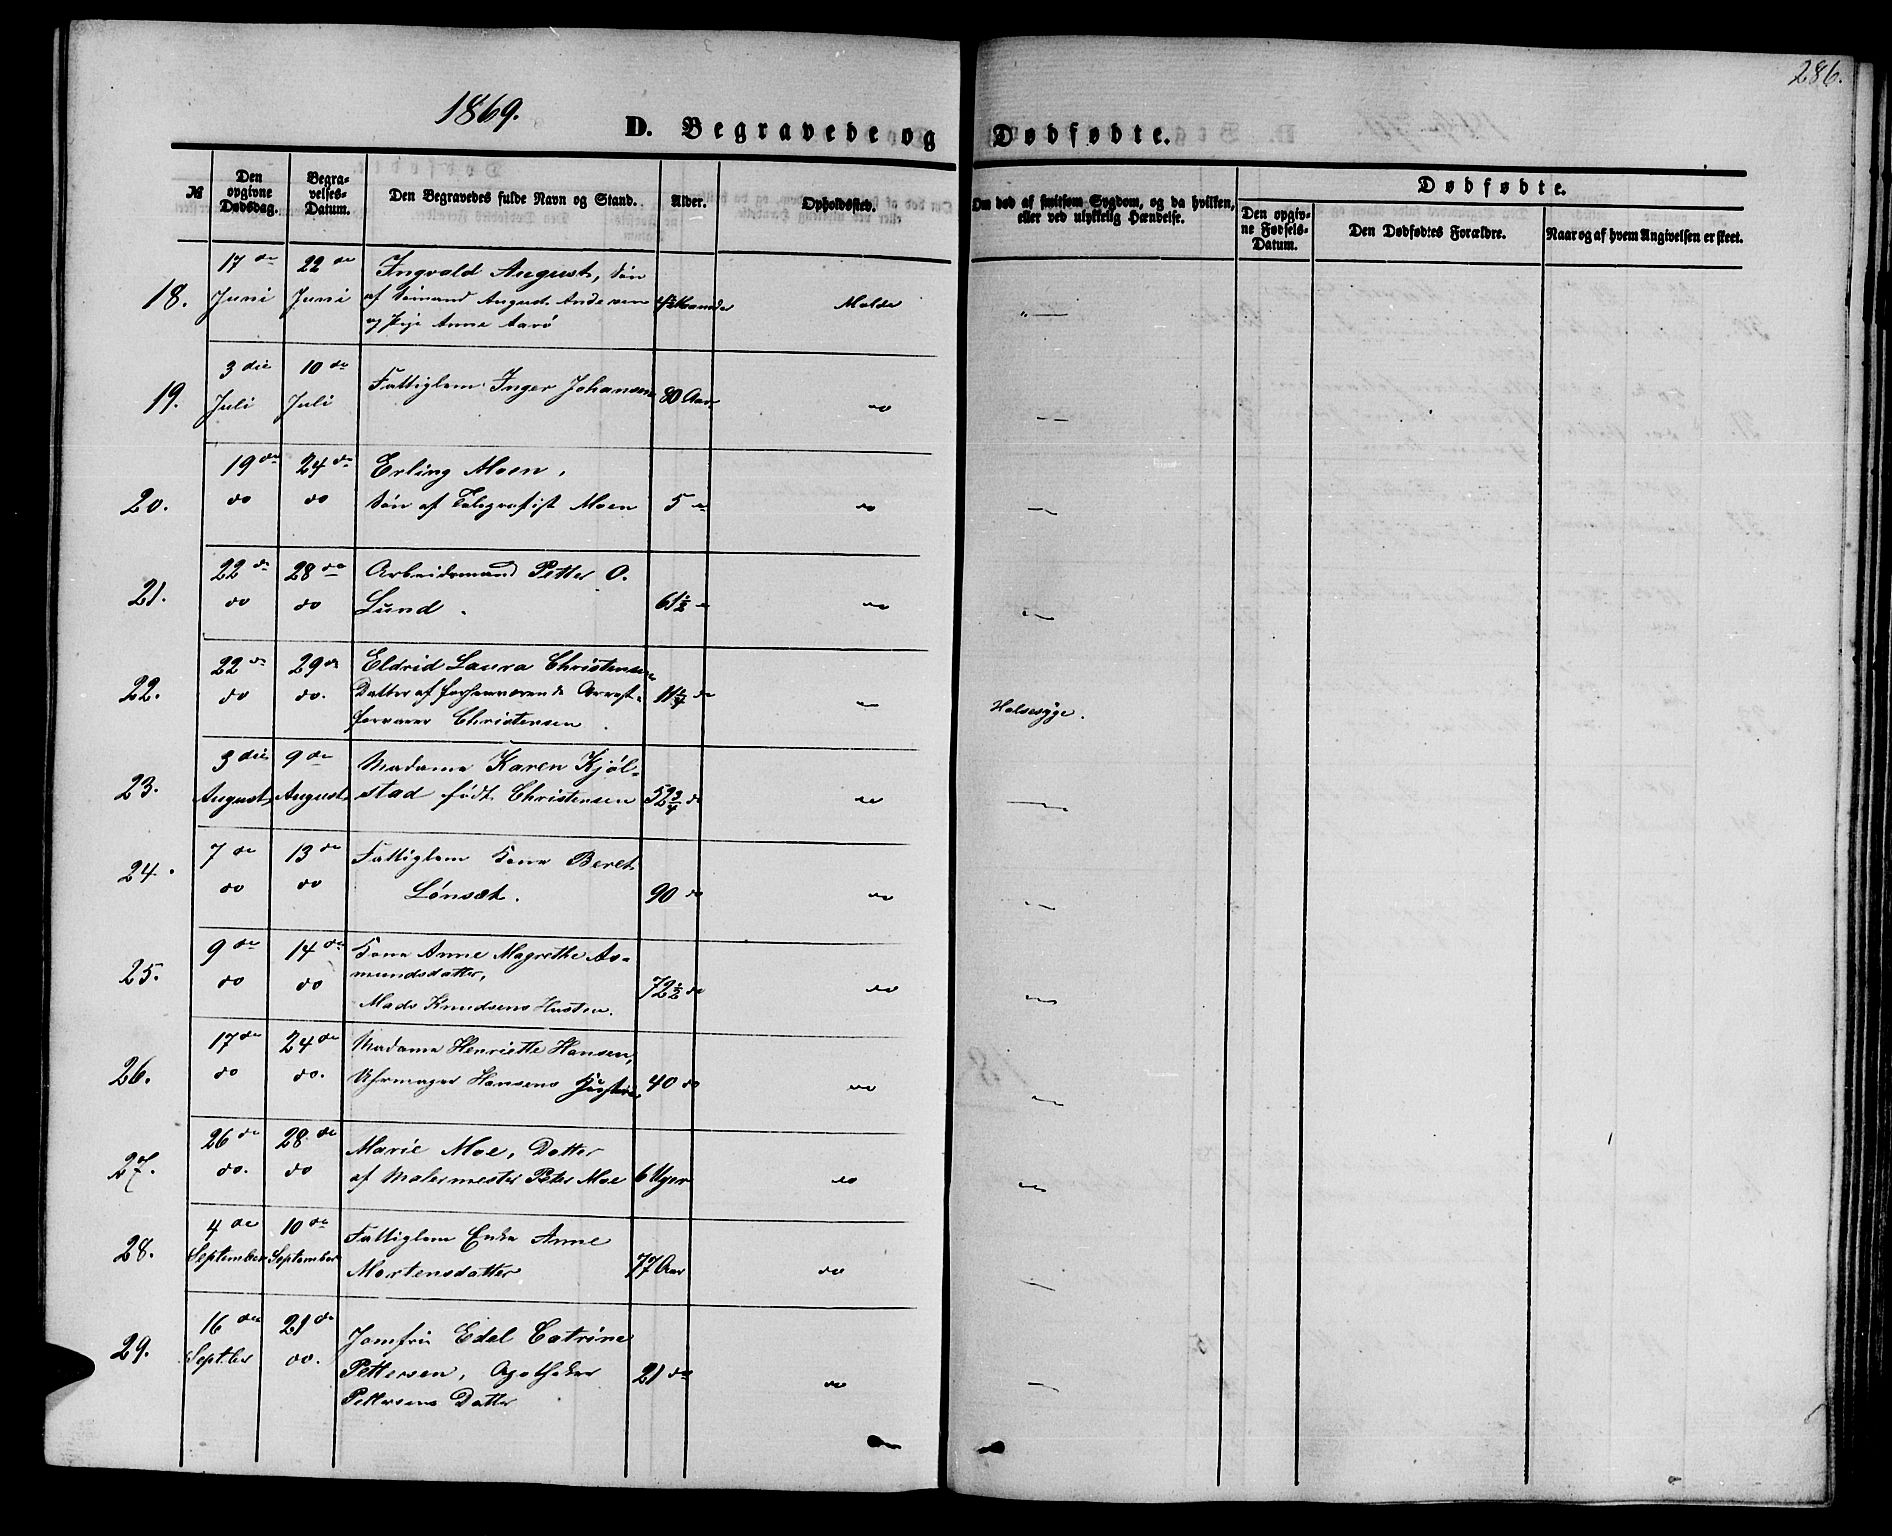 286.
1869.
D. Begravede og Dødfødte.
№
Den opgivne Dødsdag.
Begravelses-Datum.
Den Begravedes fulde Navn og Stand.
Alder.
Opholdssted.
Om død af smitsom Sygdom, og da hvilken, eller ved ulykkelig Hændelse.
Dødfødte.
Den opgivne Fødsels-Datum.
Den Dødfødtes Forældre.
Naar og af hvem Angivelsen er skeet.
18. 17de Juni 22de Juni Ingvald August, Søn
af Sømand August Andersen
og Pige Anne Aarø Maaneder Molde
19. 3die Juli 10de Juli Fattiglem Inger Johansen 80 Aar do
20. 19de do 24de do Erling Moen,
Søn af Telegrafist Moen 5 do do
21. 22de do 28de do Arbeidsmand Petter O.
Lund. 61½ do do
22. 22de do 29de do. Eldrid Laura Christensen
Datter af forhenværende Arrest-
forvarer Christensen. 11¼ do do Halssyge.
23. 3die August 9de August Madame Karen Kjøl-
stad født Christensen 52¾ do do
24. 7de do 13de do Fattiglem Kone Beret
Lønset. 90 do do
25. 9de do 14de do Kone Anne Magrethe As-
mundsdatter,
Mads Knudsens Hustru. 72½ do do
26. 17de do 24de do. Madame Henriette Hansen,
Uhrmager Hansens Hustru 40 do do
27. 26de do. 28de do Marie Moe, Datter
af Malermester Peter Moe 6 Uger do
28. 4de September 10de September Fattiglem Enke Anne
Mortensdatter 77 Aar do
29. 16de Septber 21de do. Jomfru Edel Catrine
Pettersen, Apotheker
Pettersens Datter 21 do do